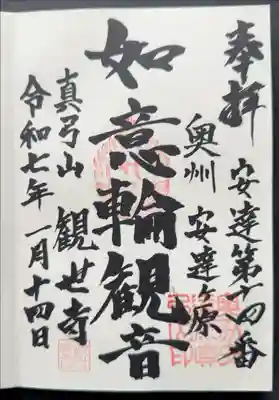 奉拝
安達第十四番
奥州
安達ヶ原
如意輪観音
真弓山
観世寺
令和七年一月十四日